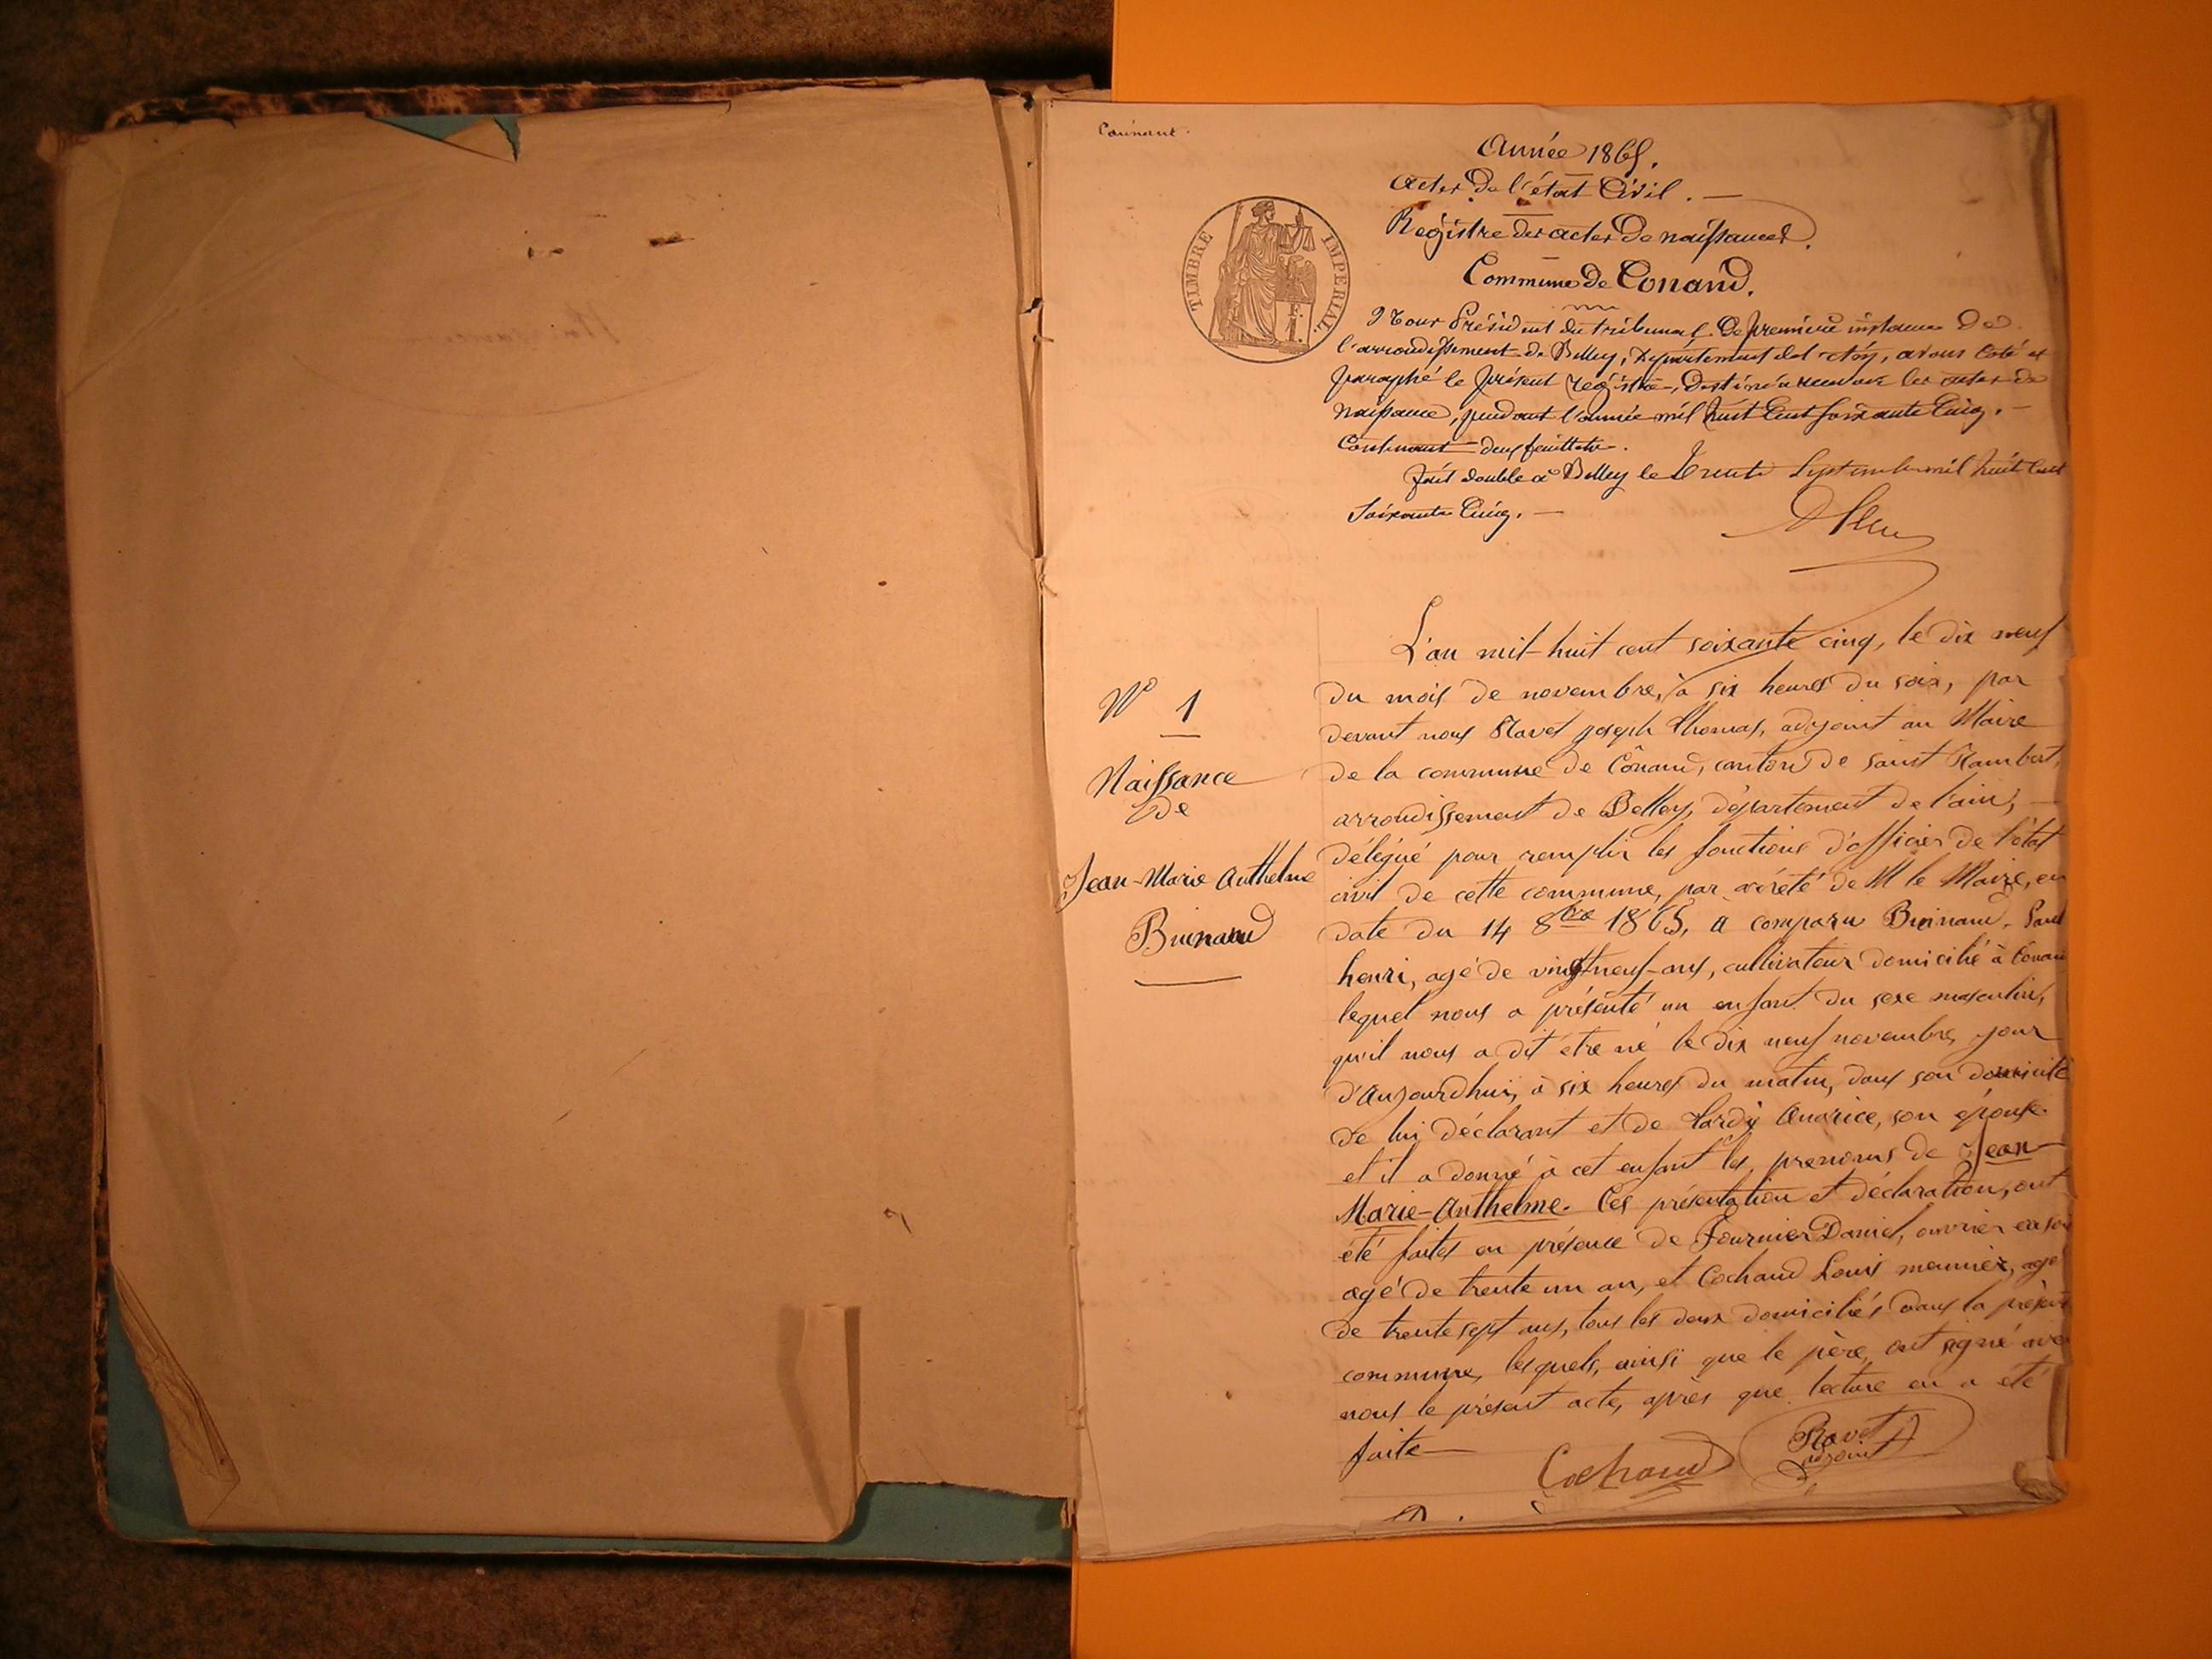 Année 1865.
Actes de l'état Civil. —
Registre des actes de naissances.
TIMBRE IMPERIAL.
Commune de Conand.
Nous Président du tribunal de première instance de
l'arrondissement de Belley, Département de l'Ain, avons Coté et
paraphé le présent registre, destiné à recevoir les actes de
Naissance, pendant l'année mil huit Cent soixante Cinq. —
Contenant deux feuillets.
fait double à Belley le trente Septembre mil huit Cent
Soixante Cinq. —
L'an mil-huit cent soixante cinq, le dix neuf
du mois de novembre, à six heures du soir, par
devant nous Ravet joseph Thomas, adjoint au Maire
de la commune de Cônand, canton de saint Rambert,
arrondissement de Belley, département de l'ain, —
délégué pour remplir les fonctions d'officier de l'état
civil de cette commune, par arrêté de M le Maire, en
date du 14 8bre 1865, a comparu Buinand, Paul
henri, agé de vingt neuf-ans, cultivateur domicilié à Conand
lequel nous a présenté un enfant du sexe masculin,
qu'il nous a dit être né le dix neuf novembre, jour
d'Aujourdhui, à six heures du matin, dans son domicile
de lui déclarant et de Hardy, son épouse.
et il a donné à cet enfant les prenoms de Jean
Marie-Anthelme. Ces présentation et déclaration, ont
été faites en présence de Fournier Daniel, ouvrier en soie
agé de trente un an, et Cochand Louis meunier, agé
de trente sept ans, tous les deux domiciliés dans la présente
commune, lesquels, ainsi que le père, ont signé avec
nous le présent acte, après que lecture en a été
faite —
Cochand
Ravet
adjoint
N° 1
Naissance
de
Jean-Marie Anthelme
Buinand